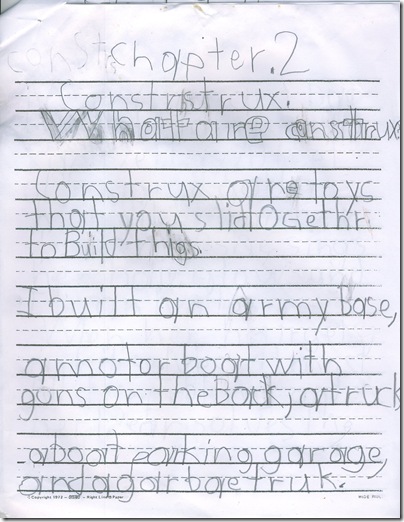 const Chapter.2
Constrstrux.
What are construx
Construx are toys
that you slid Ogethr
to Build thigs.
I built an army base,
a motor boat with
guns on the Back, a truck
a boat parking garage,
and a garbae truk.
Copyright 1972 — Right Line® Paper